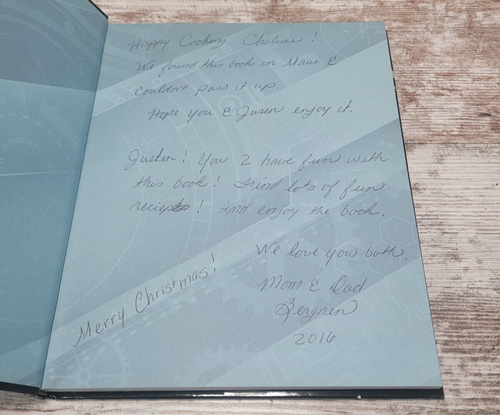 Happy Cooking Chalene!
We found this book in Maui &
couldn't pass it up.
Hope you & Jusen enjoy it.
Justin! You 2 have fun with
this book! Find lots of fun
reciepts! And enjoy the book.
We love you both,
Mom & Dad
Bergren
2016
Merry Christmas!